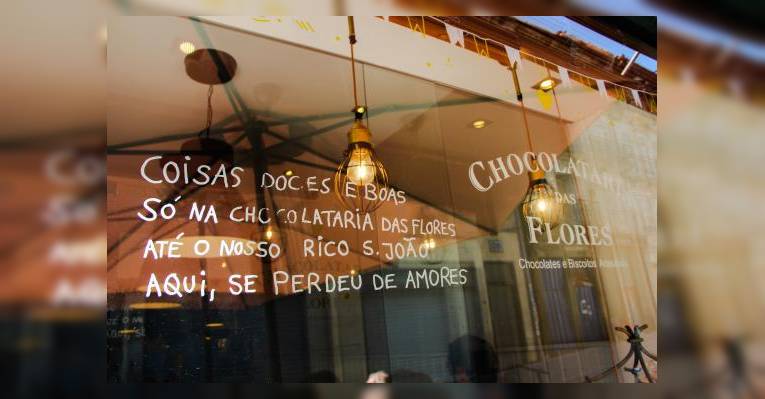 COISAS DOCES E BOAS
SÓ NA CHOCOLATARIA DAS FLORES
ATÉ O NOSSO RICO S. JOÃO
AQUI, SE PERDEU DE AMORES
CHOCOLATARIA
DAS
FLORES
Chocolates e Biscoitos